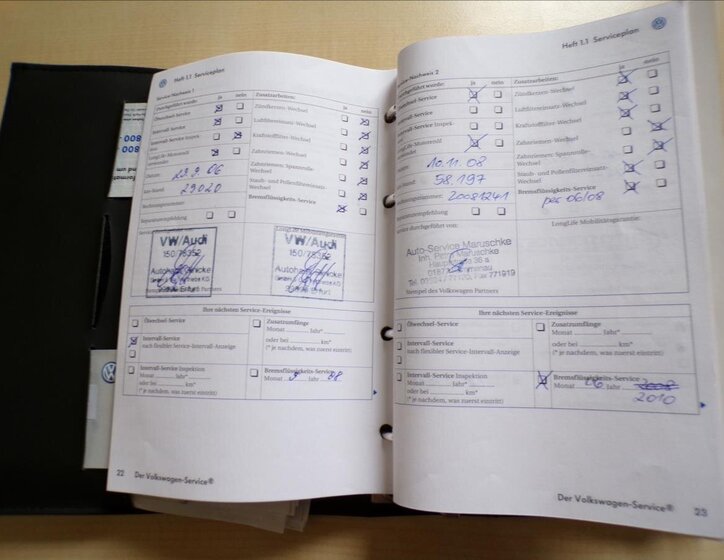 Heft 1.1 Serviceplan
Service-Nachweis 1
Durchgeführt wurde: ja nein
Ölwechsel-Service
Intervall-Service
Intervall-Service Inspek-
LongLife-Motorenöl
Datum: 29.9.06
km-Stand: 29020
Rechnungsnummer:
Reparaturempfehlung
Zusatzarbeiten: ja nein
Zündkerzen-Wechsel
Luftfiltereinsatz-Wechsel
Kraftstofffilter-Wechsel
Zahnriemen-Wechsel
Zahnriemen-/Spannrolle-
Wechsel
Staub- und Pollenfiltereinsatz-
Wechsel
Bremsflüssigkeits-Service
VW/Audi
150/75352
Erfurt
VW/Audi
150/75352
Erfurt
Ihre nächsten Service-Ereignisse
Ölwechsel-Service
Intervall-Service
nach flexibler Service-Intervall-Anzeige
Intervall-Service Inspektion
Monat Jahr*
oder bei km*
(* je nachdem, was zuerst eintritt)
Zusatzumfänge
Monat Jahr*
oder bei km*
(* je nachdem, was zuerst eintritt)
Bremsflüssigkeits-Service
Monat 9 Jahr 08
22 Der Volkswagen-Service®
Heft 1.1 Serviceplan
Service-Nachweis 2
Durchgeführt wurde: ja nein
Ölwechsel-Service
Intervall-Service
Intervall-Service Inspek-
LongLife-Motorenöl
10.11.08
58.197
20081241
Reparaturempfehlung
Service durchgeführt von:
Zusatzarbeiten: ja nein
Zündkerzen-Wechsel
Luftfiltereinsatz-Wechsel
Kraftstofffilter-Wechsel
Zahnriemen-Wechsel
Zahnriemen-/Spannrolle-
Wechsel
Staub- und Pollenfiltereinsatz-
Wechsel
Bremsflüssigkeits-Service
per 06/08
LongLife Mobilitätsgarantie:
Auto-Service Maruschke
Inh. Peter Maruschke
Hauptstraße 36 a
Stempel des Volkswagen Partners
Ihre nächsten Service-Ereignisse
Ölwechsel-Service
Intervall-Service
nach flexibler Service-Intervall-Anzeige
Intervall-Service Inspektion
Monat Jahr*
oder bei km*
(* je nachdem, was zuerst eintritt)
Zusatzumfänge
Monat Jahr*
oder bei km*
(* je nachdem, was zuerst eintritt)
Bremsflüssigkeits-Service
Monat 06 Jahr
2010
Der Volkswagen-Service® 23